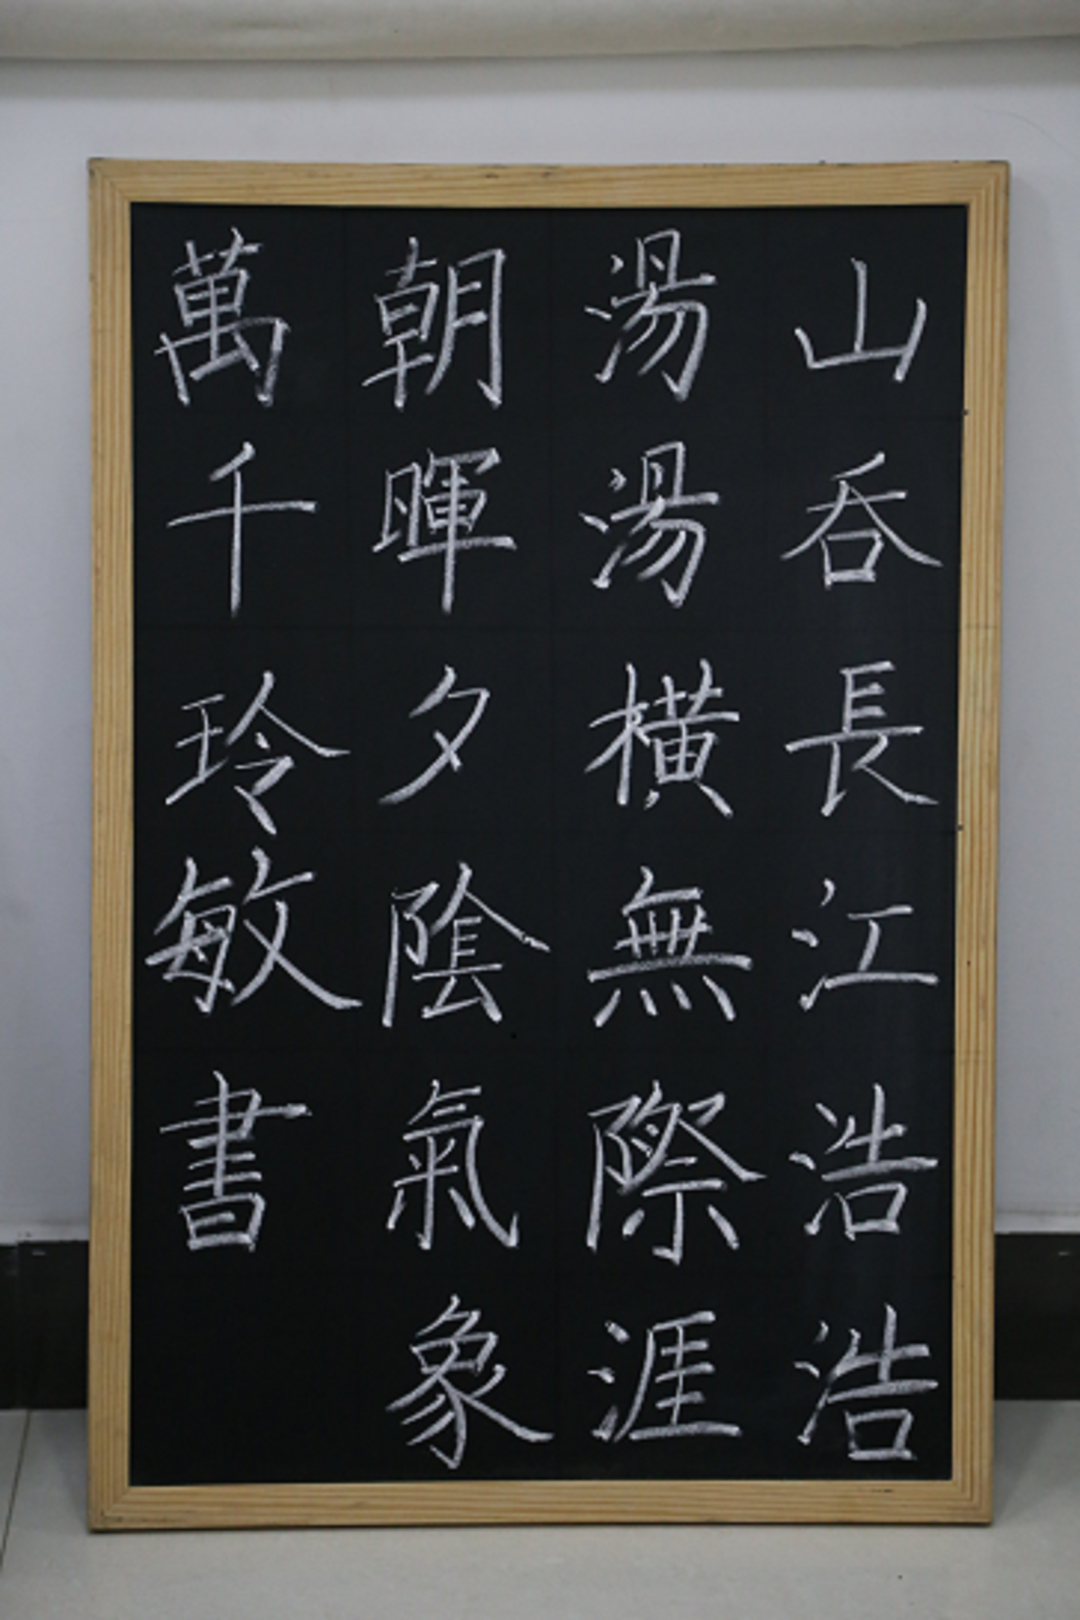 山吞長江浩浩
湯湯橫無際涯
朝暉夕陰氣象
萬千玲敏書